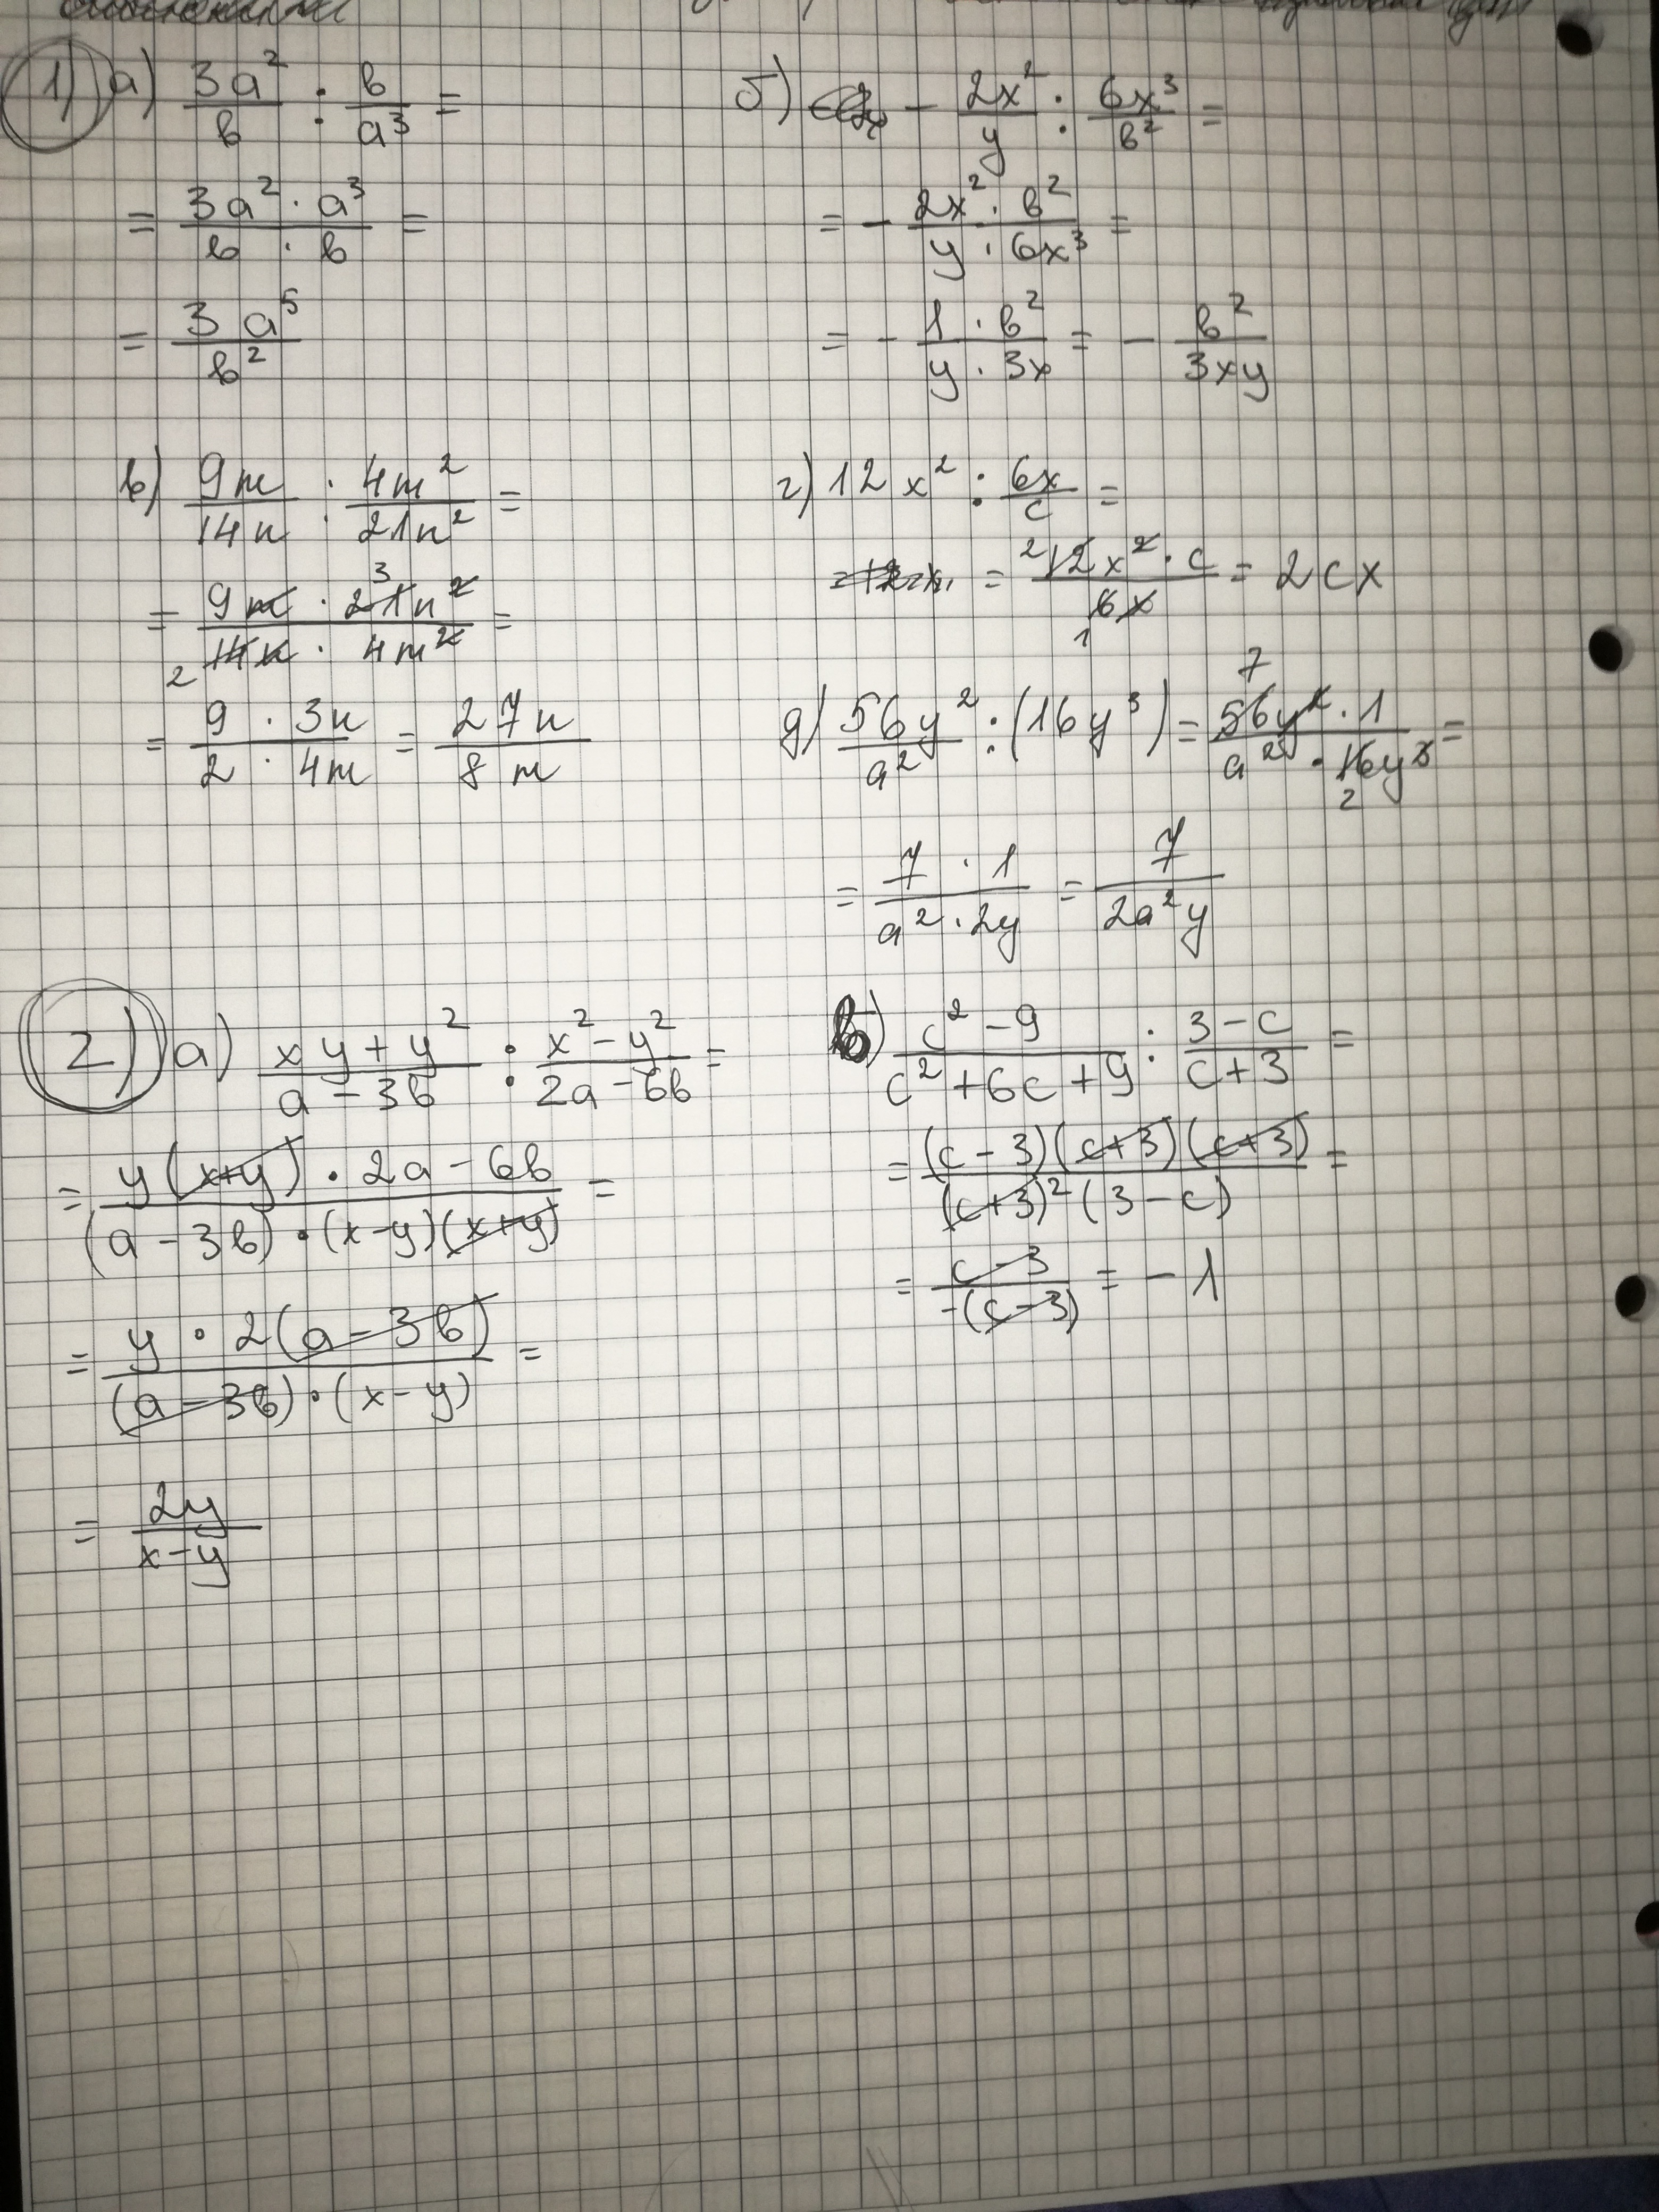 1) а) 3a²/b : b/a³ =
= 3a² · a³ / b · b =
= 3a⁵/b²
б) - 2x²/y : 6x³/b² =
= - 2x² · b² / y · 6x³ =
= - 1 · b² / y · 3x = - b²/3xy
в) 9m/14n : 4m²/21n² =
= 9m · 21n² / 14n · 4m² =
3
2
= 9 · 3n / 2 · 4m = 27n/8m
г) 12x² : 6x/c =
= 12x² · c / 6x = 2cx
2
1
д) 56y²/a² : (16y³) = 56y² · 1 / a² · 16y³ =
7
2
= 7 · 1 / a² · 2y = 7/2a²y
2) а) xy+y² / a-3b : x²-y² / 2a-6b =
= y(x+y) · 2a-6b / (a-3b) · (x-y)(x+y) =
= y · 2(a-3b) / (a-3b) · (x-y) =
= 2y / x-y
б) c²-9 / c²+6c+9 : 3-c / c+3 =
= (c-3)(c+3)(c+3) / (c+3)²(3-c) =
= c-3 / -(c-3) = -1